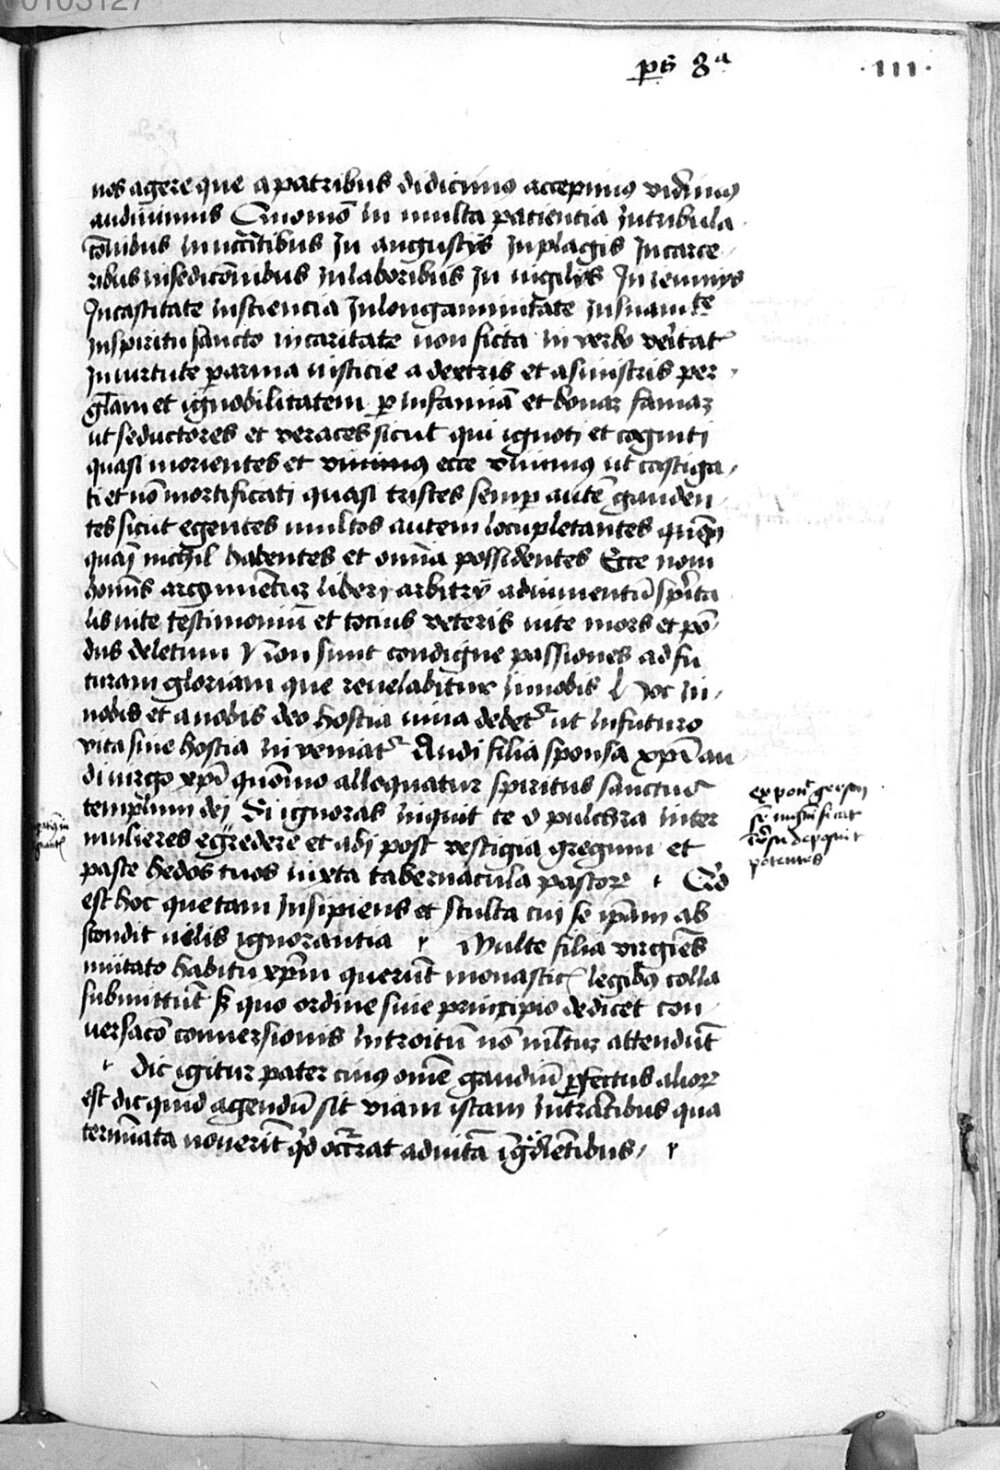 00103127
ps 8a
.111.
nos agere que a patribus didicimus accepimus vidimus
audivimus Quomō in multa patientia In tribula
cōnibus in necessitatibus In angustijs In plagis In carce
ribus in sedicōnibus In laboribus In vigilijs In ieiunijs
In castitate In sciencia In longanimitate In suauitate
In spiritu sancto in caritate non ficta in verbo veritatis
In virtute per arma iusticie a dextris et a sinistris per
glām et ignobilitatem p infamiā et bonaz famaz
ut seductores et veraces sicut qui ignoti et cogniti
quasi morientes et ecce vivimus ut castiga
ti et nō mortificati quasi tristes semp autē gauden
tes sicut egentes multos autem locupletantes
quasi nichil habentes et omīa possidentes Ecce noui
homīs argumētuz liberi arbitrij adiumentū spirita
lis vite testimoniū et tocius veteris vite mors et pō
dus deletum Non sunt condigne passiones ad fu
turam gloriam que revelabitur In nobis hoc in
nobis et a nobis deo hostia viva debetr ut In futuro
vita sine hostia inveniatr Audi filia sponsa xpī au
di virgo xpī quōmo alloquatur spiritus sanctus
templum dei Si ignoras inquit te o pulchra inter
mulieres egredere et abi post vestigia gregum et
pasce hedos tuos iuxta tabernacula pastorz Quid
est hoc que tam Insipiens et stulta cui se ipām ab
scondit vilis ignorantia Multe filia virgīes
mutato habitu xpm querūt monasticis legibus colla
submittūt sz quo ordine sive principio dedicet con
versacōm conversionis Introitū nō multuz attendūt
Dic igitur pater cuius omē gaudiū pfectus aliorz
est dic quid agendū sit viam istam Intrātibus qua
termīata noverīt qd occurrat ad vitā ingredientibus